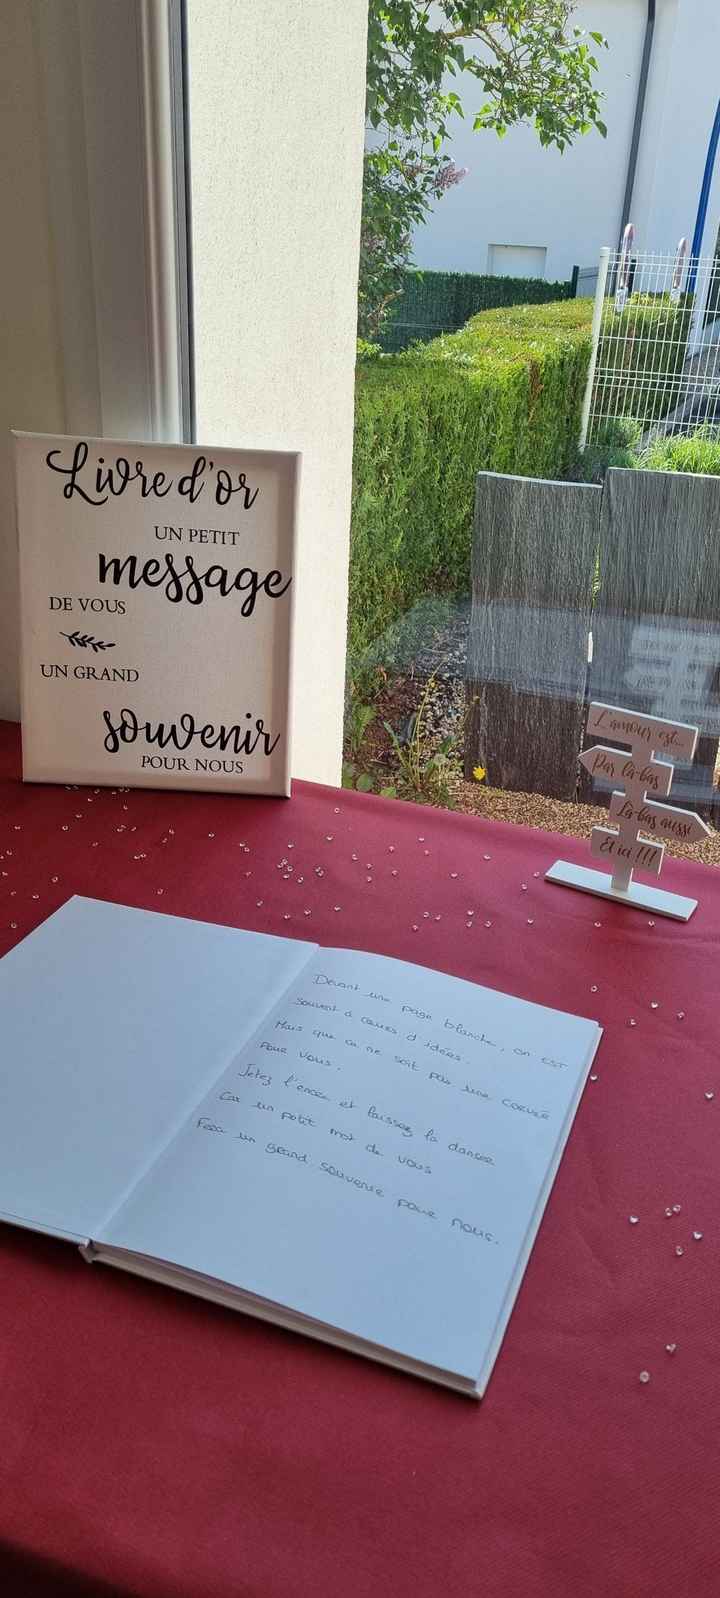 Livre d'or
UN PETIT
message
DE VOUS
UN GRAND
souvenir
POUR NOUS
L'amour est...
Par là-bas
Là-bas aussi
Et ici !!!
Devant une page blanche, on est
souvent à cours d'idées.
Mais que ca ne soit pas une corvée
pour vous.
Jetez l'encre et laissez la danser
Car un petit mot de vous
Fera un grand souvenir pour nous.